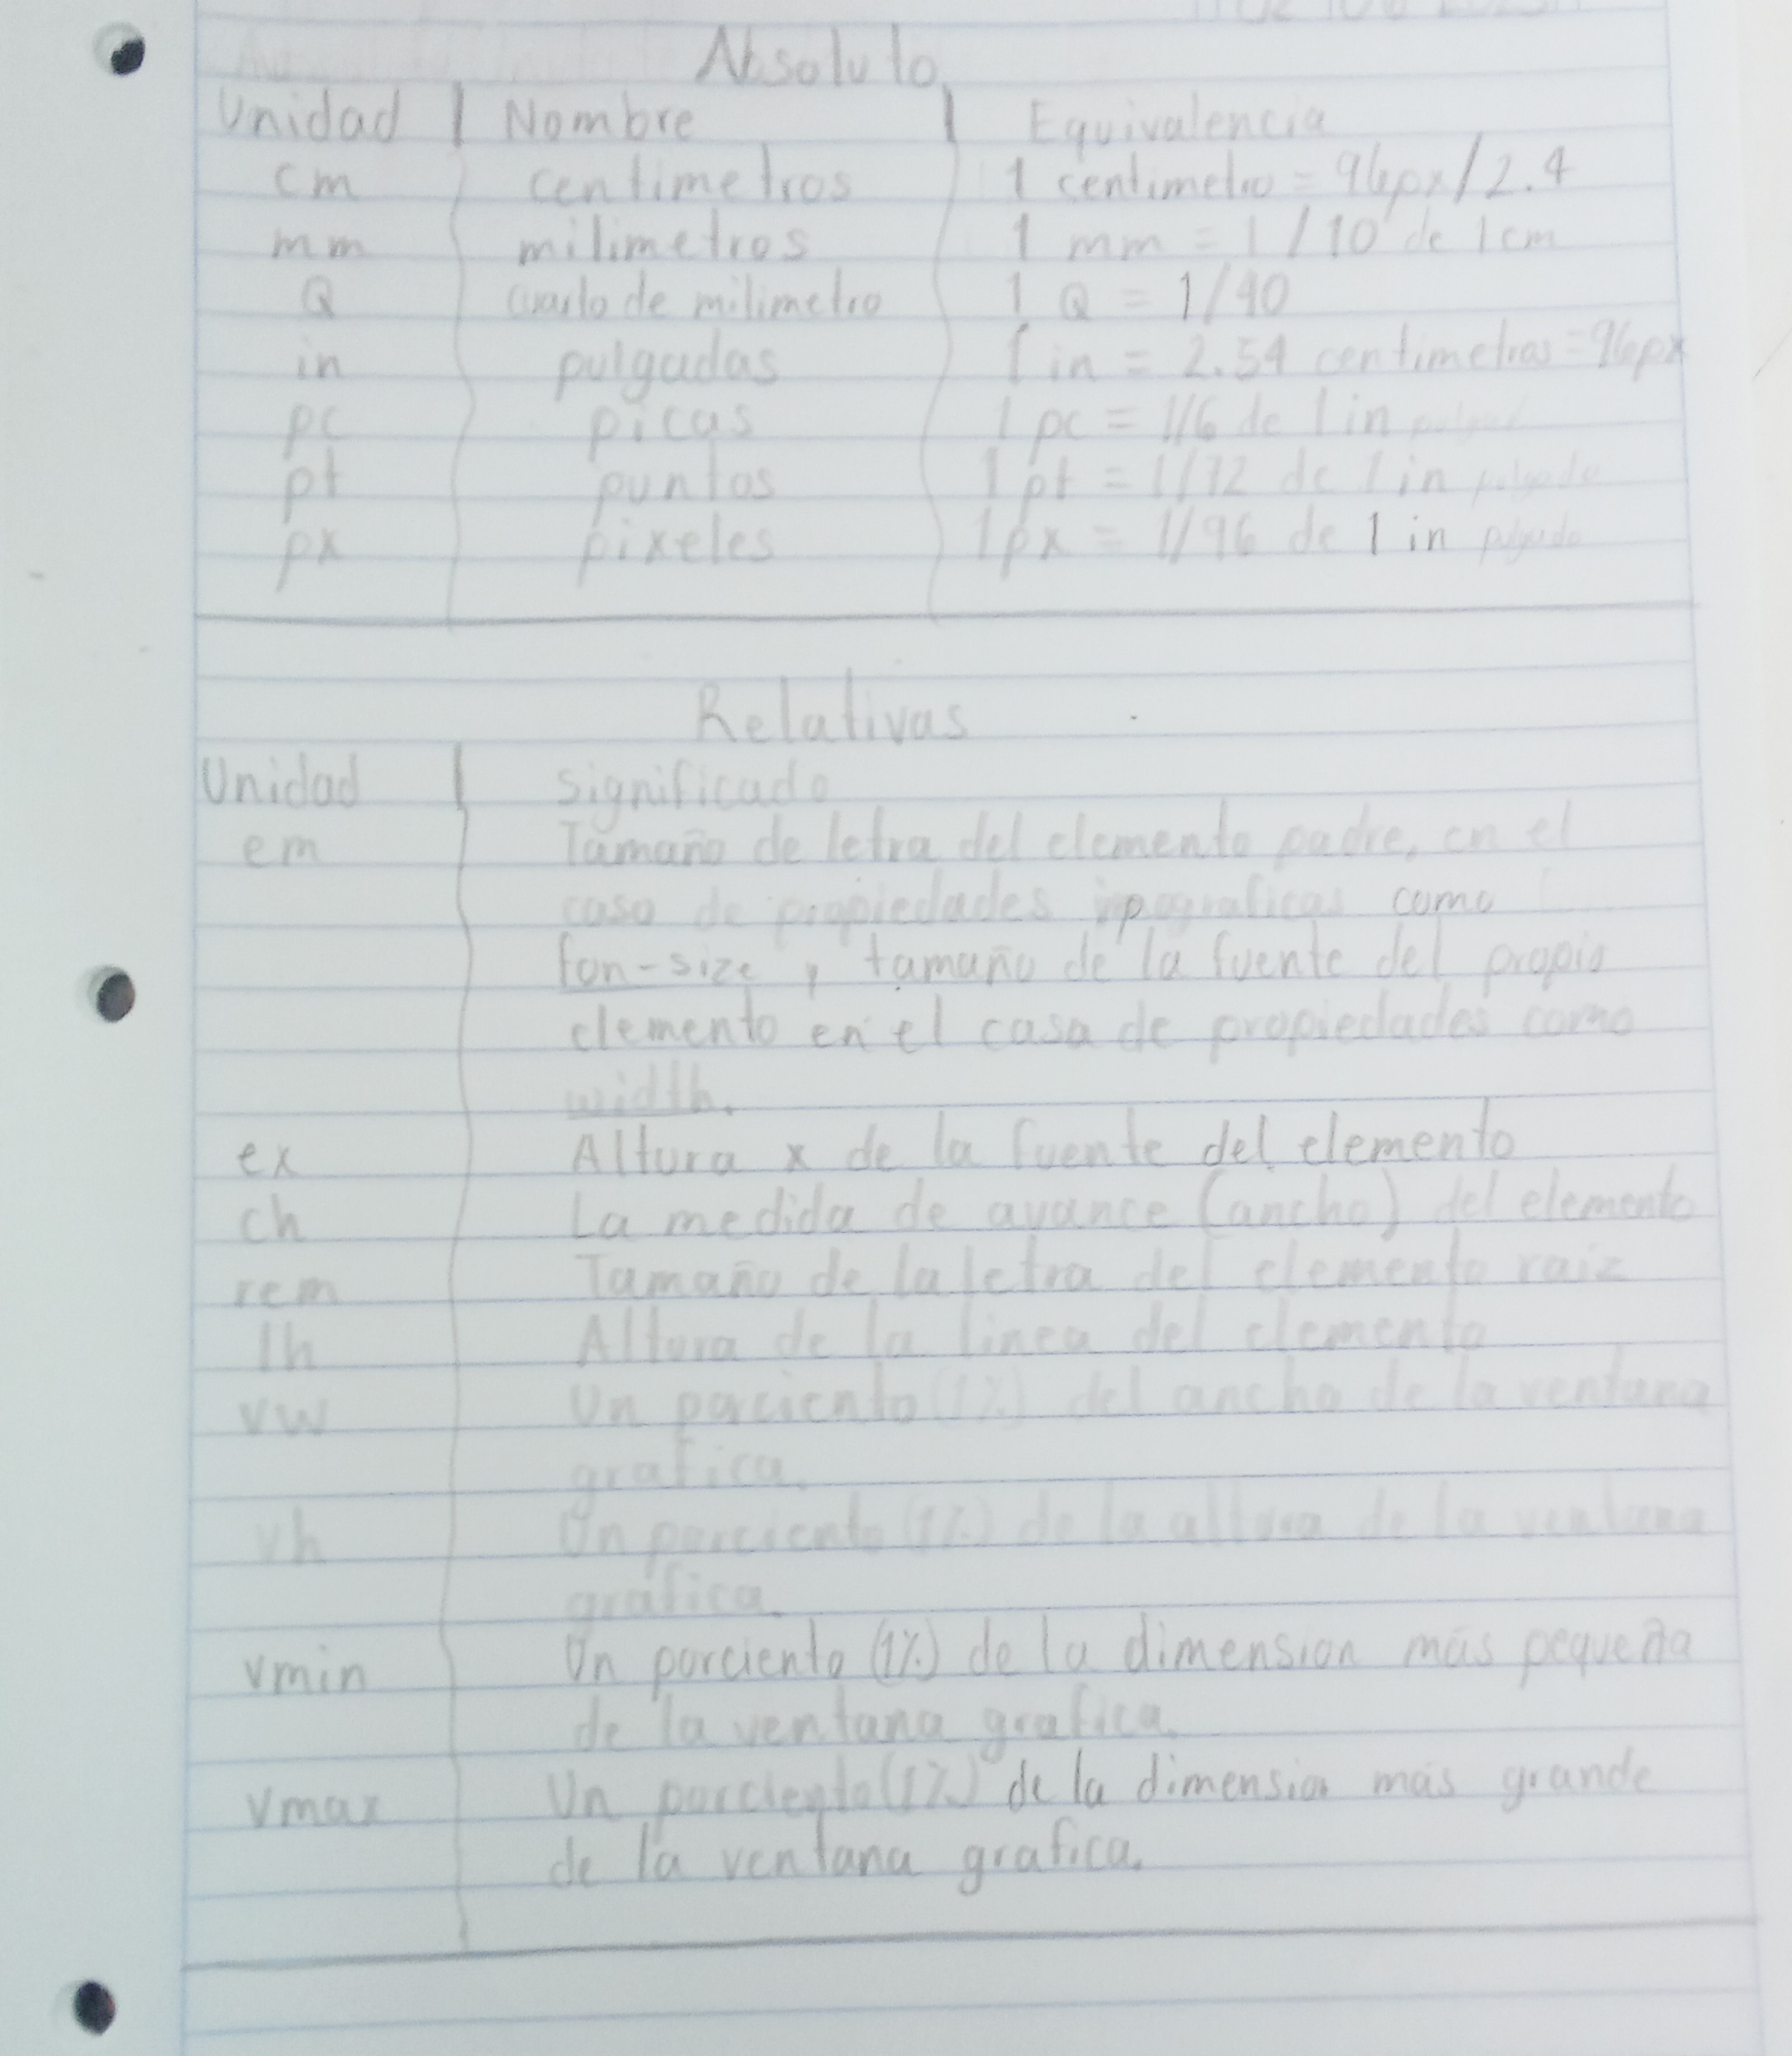 Absoluto
Unidad | Nombre | Equivalencia
cm centimetros 1 centimetro = 96px/2.4
mm milimetros 1 mm = 1/10 de 1cm
Q cuarto de milimetro 1 Q = 1/40
in pulgadas 1 in = 2.54 centimetros = 96px
pc picas 1 pc = 1/6 de 1 in
pt puntos 1 pt = 1/72 de 1 in pulgada
px pixeles 1px = 1/96 de 1 in pulgada
Relativas
Unidad | significado
em Tamaño de letra del elemento padre, en el
caso de propiedades como
fon-size, tamaño de la fuente del propio
elemento en el casa de propiedades como
width.
ex Altura x de la fuente del elemento
ch La medida de avance (ancho) del elemento
rem Tamaño de la letra del elemento raiz
lh Altura de la linea del elemento
vw Un porciento (1%) del ancho de la ventana
grafica.
vh Un porciento (1%) de la altura de la ventana
grafica.
vmin Un porciento (1%) de la dimension más pequeña
de la ventana grafica.
vmax Un porciento (1%) de la dimension más grande
de la ventana grafica.